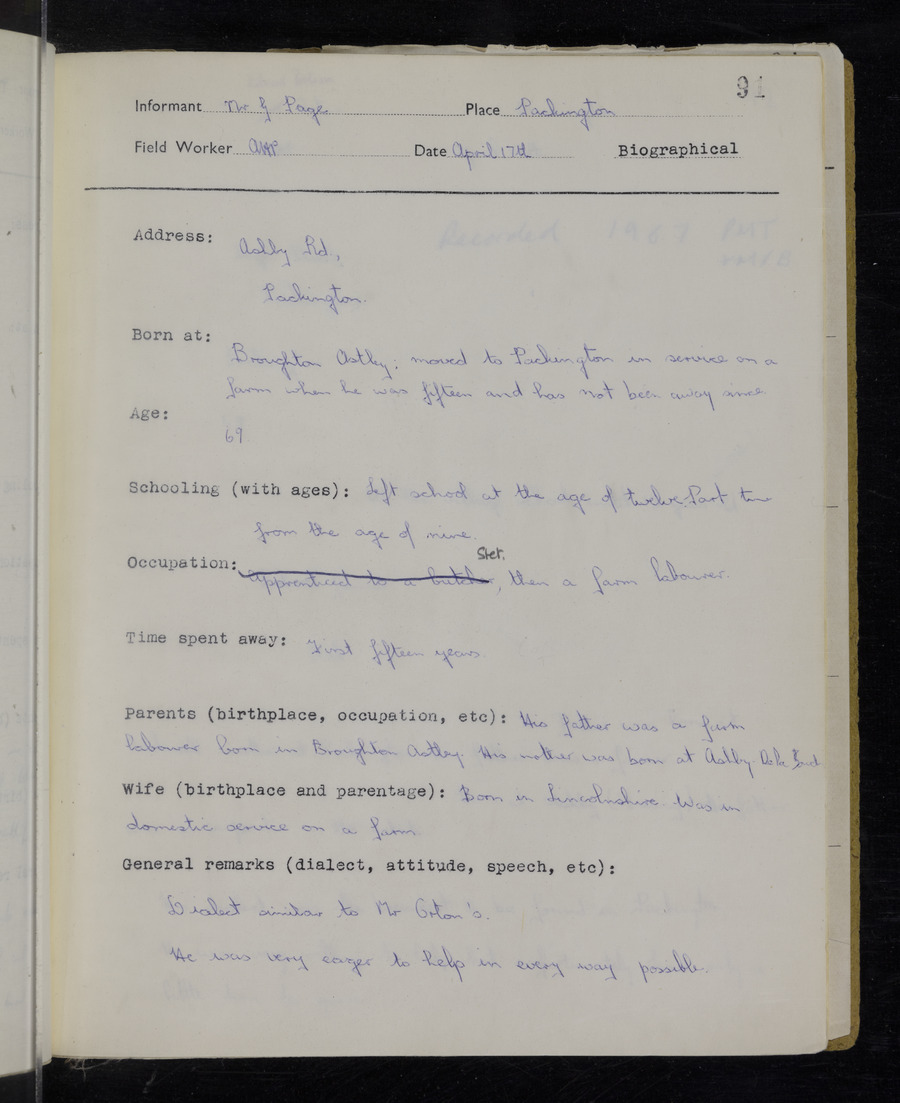 91
Informant Mr J Page Place Packington
Field Worker AWP Date April 17th Biographical
Recorded 1967 PMT
Address: Ashby Rd,
Packington.
Born at:
Broughton Astley; moved to Packington in service on a
farm when he was fifteen and has not been away since
Age:
69.
Schooling (with ages): Left school at the age of twelve. Part time
from the age of nine.
Stet.
Occupation: Apprenticed to a butcher, then a farm labourer.
Time spent away: First fifteen years.
Parents (birthplace, occupation, etc): His father was a farm
labourer born in Broughton Astley. His mother was born at Ashby
Wife (birthplace and parentage): Born in Lincolnshire. Was in
domestic service on a farm
General remarks (dialect, attitude, speech, etc):
Dialect similar to Mr Orton's.
He was very eager to help in every way possible.